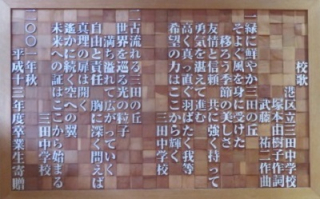 校歌
港区立三田中学校
塚本由樹子作詞
武藤祐二作曲
一 緑に鮮やか三田の丘
そよぐ風を身に受けて
移りゆく季節の美しさ
友情と信頼 共に強く持って
勇気を湛えて進む
高く真っ直ぐ羽ばたく我等
希望の力はここから輝く
三田中学校
二 古流れる三田の丘
世界を巡る光の粒子
満ち溢れて広がっていく
自由と責任 胸に深く問えば
真理の扉は開く
遥かに続く空への翼
未来への証はここから始まる
三田中学校
二〇〇一年秋
平成十三年度卒業生寄贈